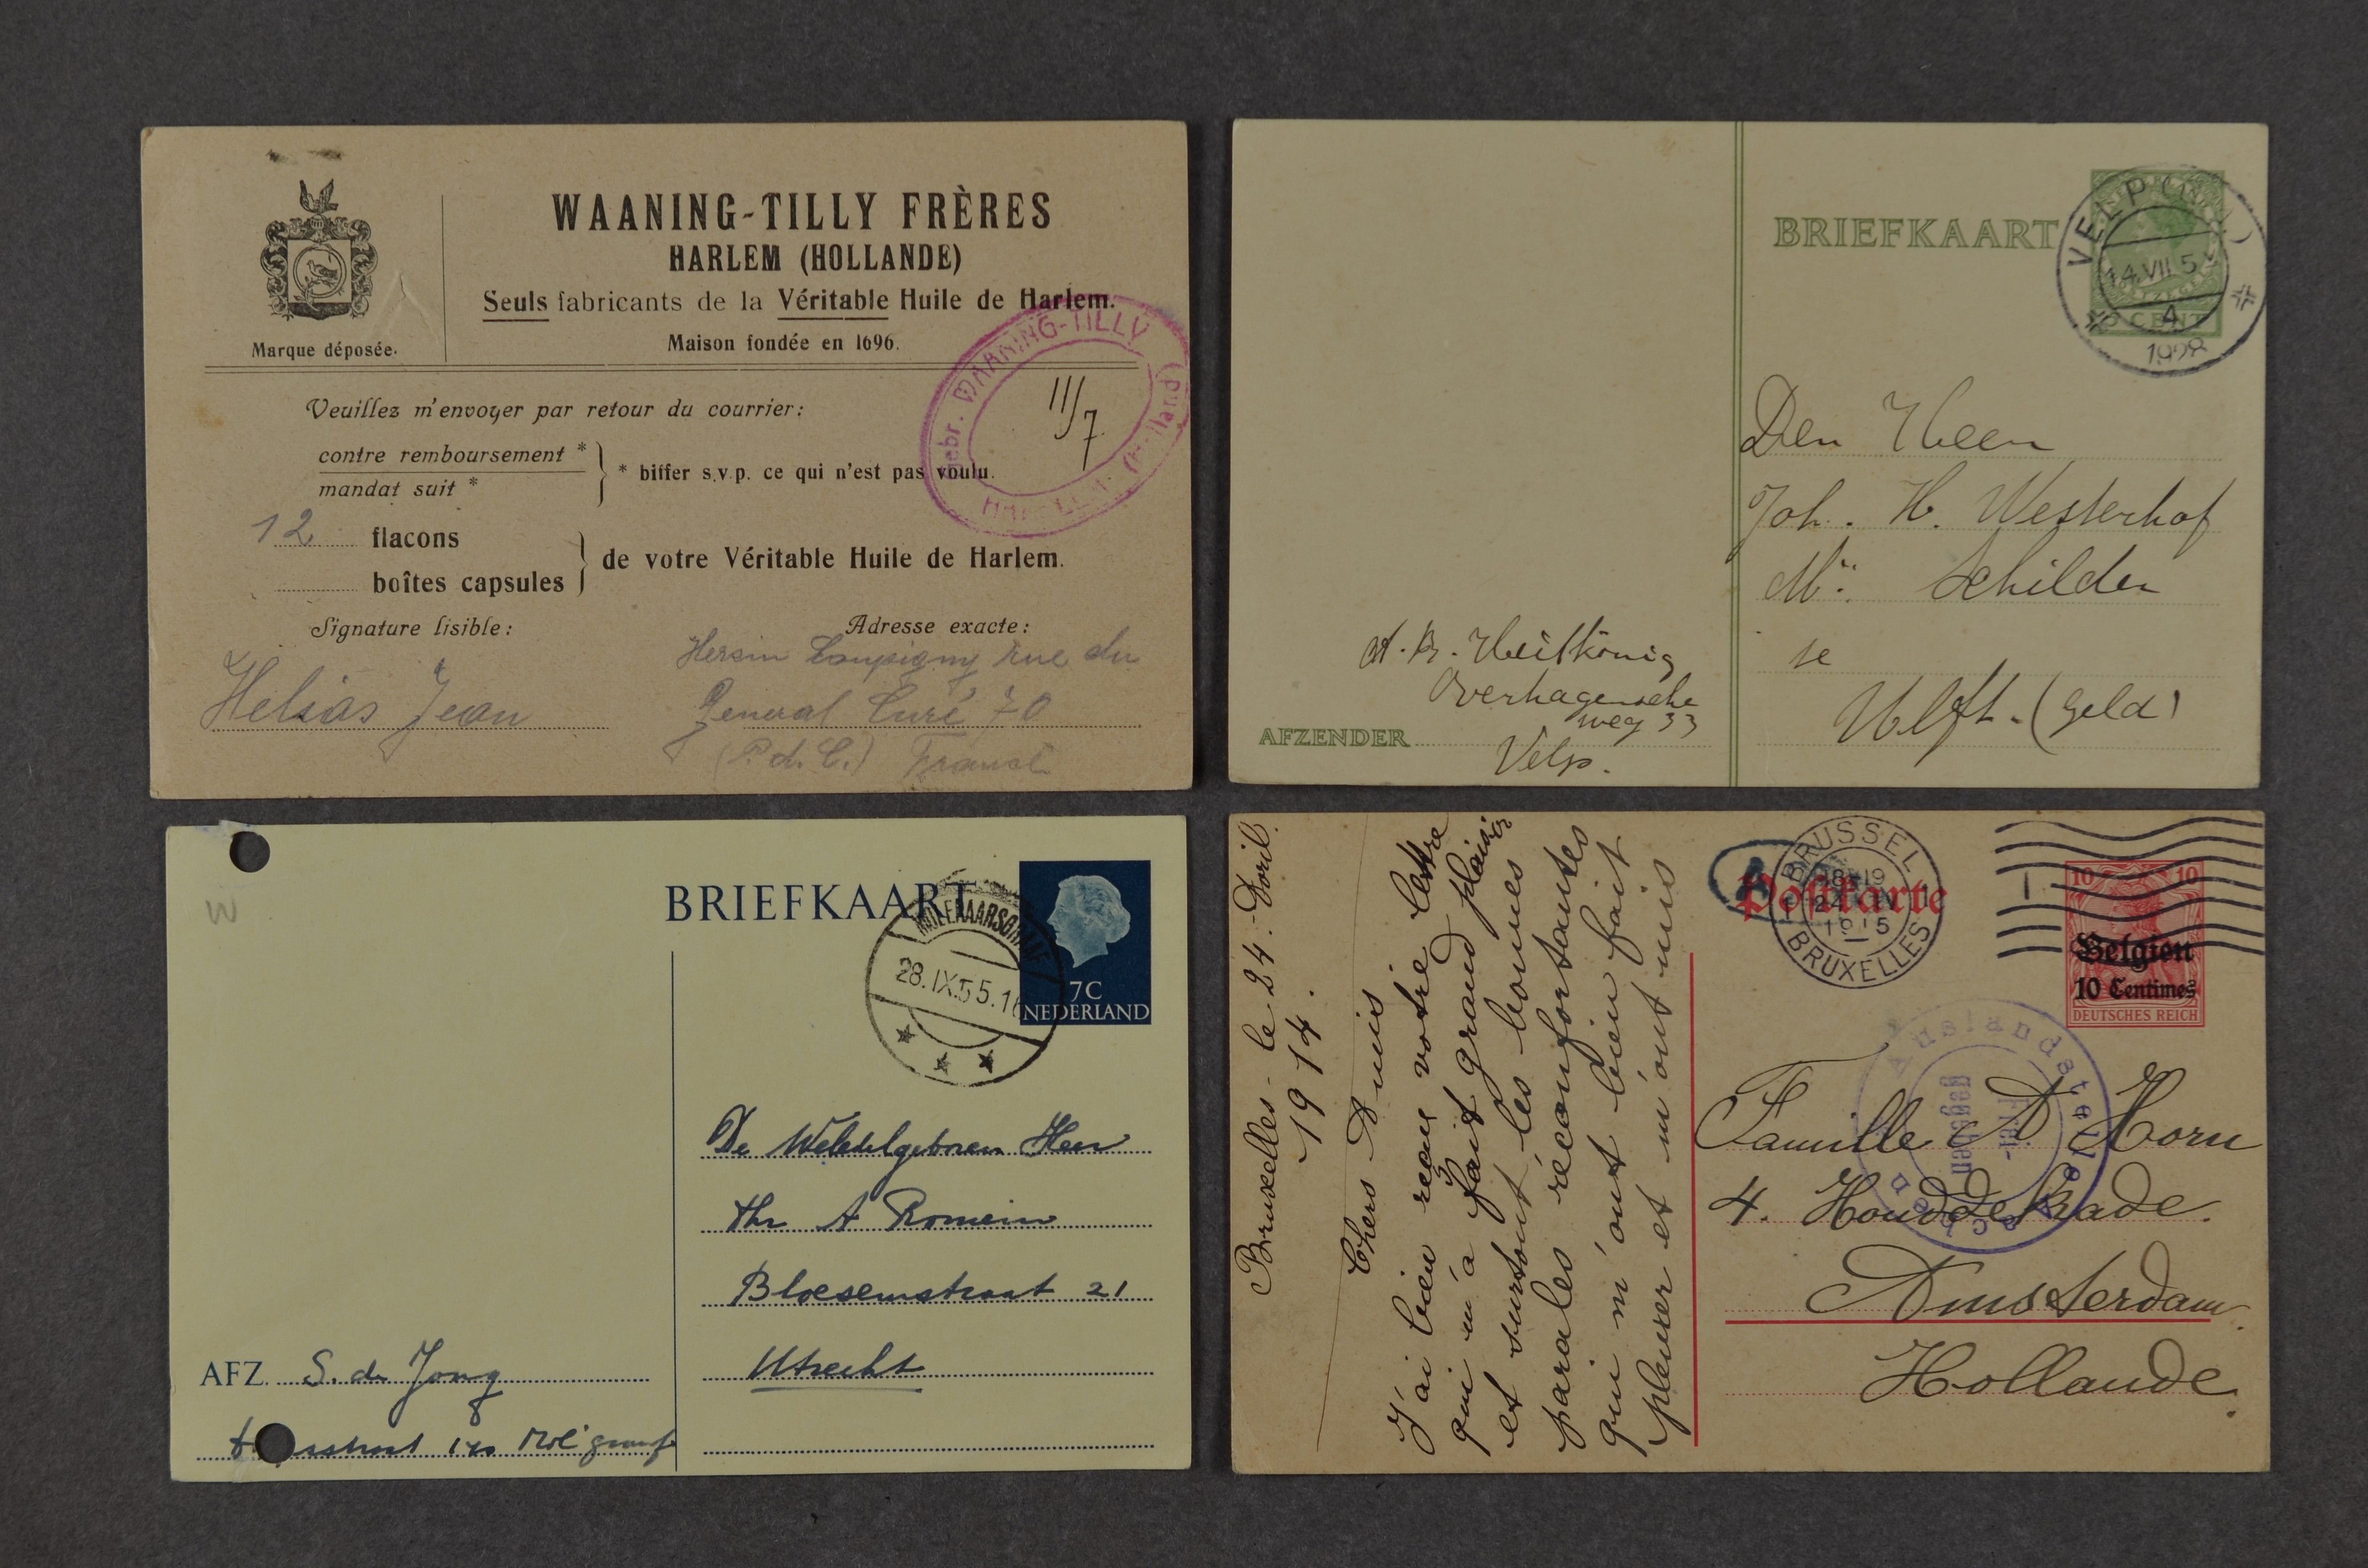 WAANING-TILLY FRÈRES
HARLEM (HOLLANDE)
Seuls fabricants de la Véritable Huile de Harlem.
Maison fondée en 1696.
Marque déposée.
Gebr. WAANING-TILLY
11/7.
Veuillez m'envoyer par retour du courrier:
contre remboursement *
mandat suit *
* biffer s.v.p. ce qui n'est pas voulu.
12 flacons
boîtes capsules
de votre Véritable Huile de Harlem.
Signature lisible:
Adresse exacte:
Helias Jean
Hersin Coupigny rue du
General Curé 70
(P. d. C.) France
BRIEFKAART
VELP
14.VII 5
4
1928
CENT
Den Heer
Joh. H. Westerhof
Mr. Schilder
te
Ulft. (Geld)
Overhagensche
weg 33
AFZENDER
Velp.
W
BRIEFKAART
MOLENAARSGRAAF
28.IX.55.1
7C
NEDERLAND
De Weledelgeboren Heer
A Romein
Bloesemstraat 21
Utrecht
AFZ. S. de Jong
Bruxelles - le 24.
1914.
Chers Amis
J'ai bien reçu votre lettre
qui m'a fait grand plaisir
et surtout les bonnes
paroles réconfortantes
qui m'ont bien fait
pleurer et m'ont mis
Postkarte
BRUSSEL
18-19
24 IV
1915
BRUXELLES
10 10
Belgien
10 Centimes
DEUTSCHES REICH
Auslandstelle
Frei-
gegeben
Aachen
Famille A Horn
4. Houddekade.
Amsterdam.
Hollande.